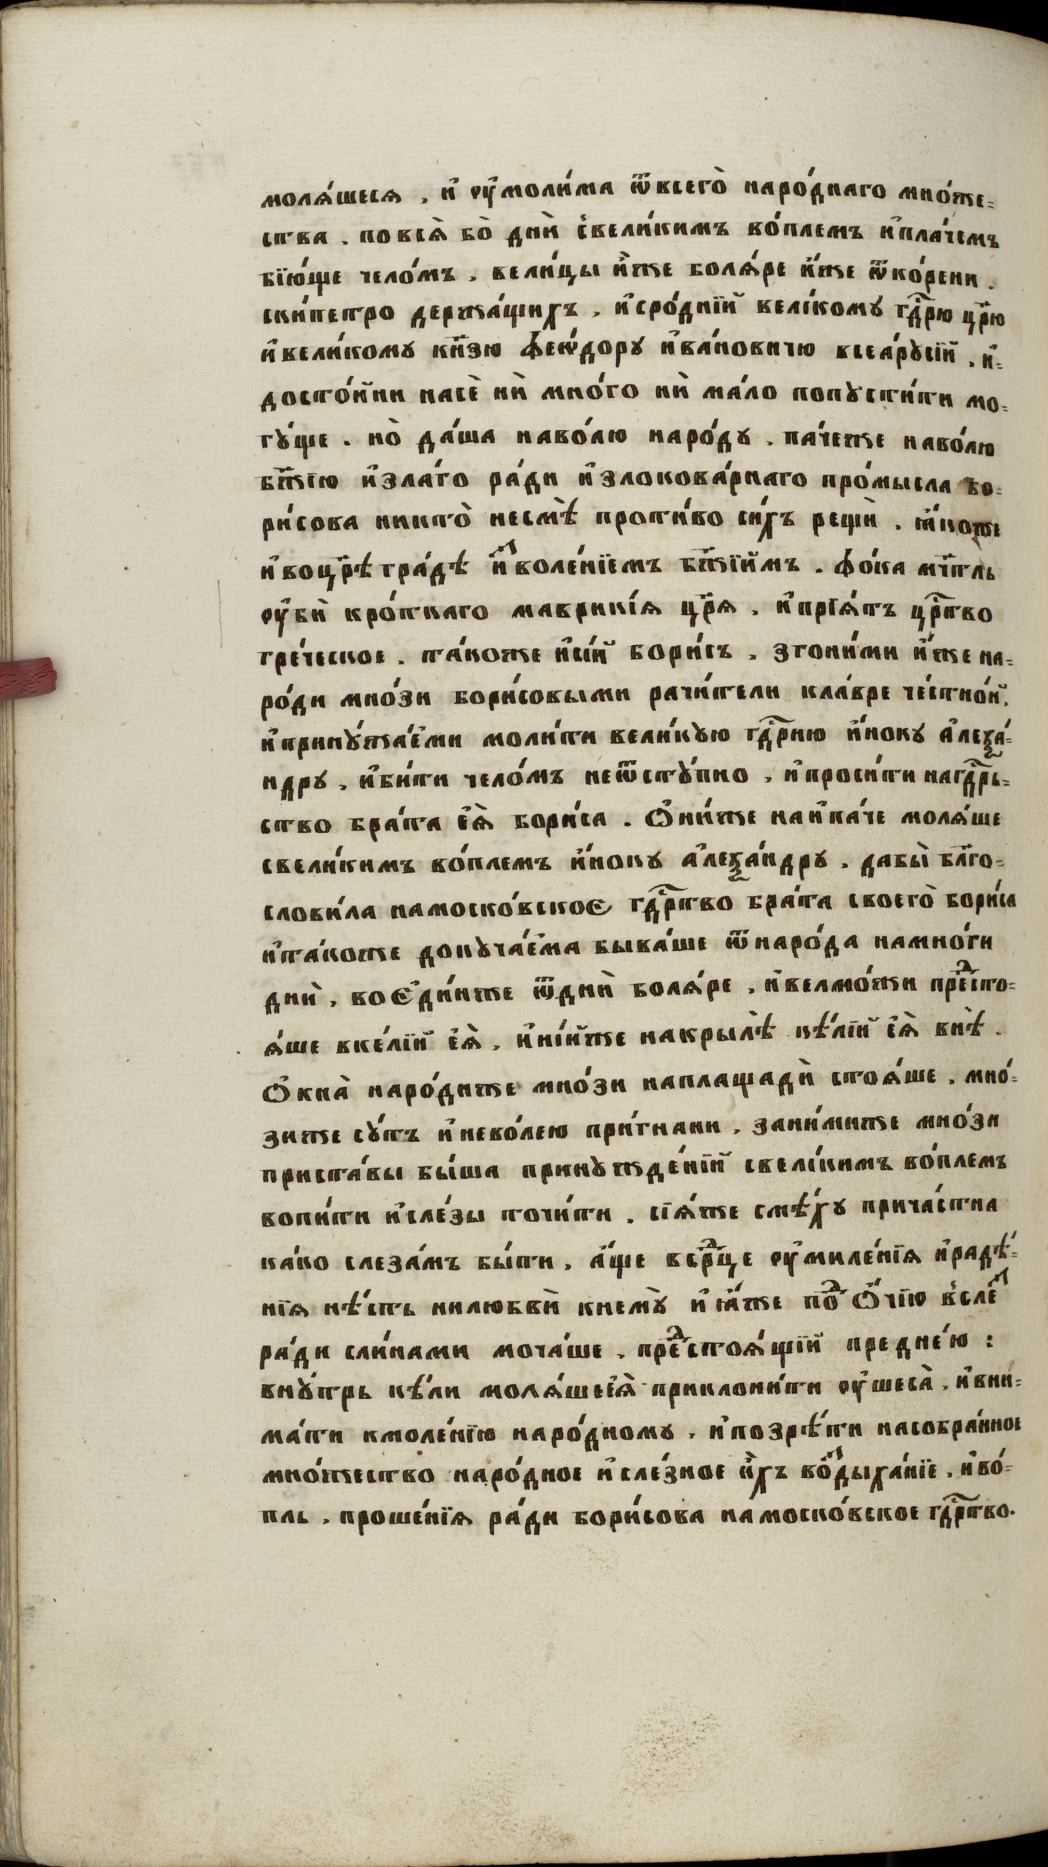 молѧ́шесѧ , и҆ ᲂу҆моли́ма ѿвсегѡ̀ наро́днаго мно́же=
ства . повсѧ̀ бо̀ днѝ свели́кимъ во́племъ и҆пла́чемъ
бїю́ще чело́мъ , вели́цы и҆́же болѧ́ре и҆́же ѿко́рени .
скипетро держа́щихъ , и҆сро́днїй вели́кому гдⷭ҇рю цр҃ю
и҆вели́кому кн҃зю Ѳеѡ́дору и҆ва́новичю всеарꙋсїи , и҆=
досто́йни насѐ нѝ мно́го нѝ ма́ло попꙋсти́ти мо=
гꙋ́ще . но̀ да́ша наво́лю наро́дꙋ , па́чеже наво́лю
бж҃їю и҆зла́го ра́ди и҆злокова́рнаго про́мысла бо=
ри́сова никто̀ несмѣ̀ проти́во си́хъ рещѝ , ꙗ҆́коже
и҆воцр҃ѣ гра́дѣ и҆ⷥволе́нїемъ бж҃їимъ . фо́ка мч҃тль
ᲂу҆бѝ кро́ткаго маврикі́ѧ цр҃ѧ , и҆прїѧ́тъ црⷭ҇тво
гре́ческое . та́коже и҆сі́й бори́съ , згони́ми и҆́же на=
ро́ди мно́зи бори́совыми рачи́тели кла́вре че́стной ,
и҆принꙋжа́еми моли́ти вели́кꙋю гдⷭ҇рню и҆́нокꙋ а҆леѯа́=
ндрꙋ , и҆би́ти чело́мъ неѿстꙋ́пно , и҆проси́ти нагдⷭ҇рь=
ство бра́та єѧ̀ бори́са . Ѻ҆ни́же наипа́че молѧ́ше
свели́кимъ во́племъ и҆́нокꙋ а҆леѯа́ндрꙋ , дабы̀ бл҃го=
слови́ла намоско́вское гдⷭ҇рство бра́та своегѡ̀ бори́са
и҆та́коже докꙋча́ема быва́ше ѿнаро́да намно́ги
днѝ , воєди́нже ѿднѝ болѧ́ре , и҆велмо́жи преⷣсто=
ѧ́ше вке́лїй єѧ̀ , и҆ні́иже накрылѣ̀ кѣ́лїй єѧ̀ внѣ̀ .
Ѻ҆кна̀ наро́диже мно́зи наплащадѝ стоѧ́ше , мно́=
зиже сꙋ́ть и҆нево́лею при́гнани , зани́миже мно́зи
приста́вы бы́ша принꙋжде́нїй свели́кимъ во́племъ
вопи́ти и҆сле́зы точи́ти . сїѧ́же смѣ́хꙋ прича́стна
ка́ко слеза́мъ бы́ти , а҆́ще всеⷬ҇це ᲂу҆миле́нїѧ и҆радѣ́=
нїѧ нѣ́сть нилюбвѝ кнемꙋ̀ и҆ ꙗ҆́же поⷣ Ѻ҆́чїю всле́ⷥ
ра́ди сли́нами моча́ше , преⷣстоѧ́щїй предне́ю :
внꙋ́трь кѣ́ли молѧ́шеєѧ̀ приклони́ти ᲂу҆шеса̀ , и҆вни=
ма́ти кмоле́нїю наро́дномꙋ , и҆позрѣ́ти насобра́нное
мно́жество наро́дное и҆сле́зное и҆́хъ воⷥдыха́нїе , и҆во́=
пль , проше́нїѧ ра́ди бори́сова намоско́вское гдⷭ҇рство .